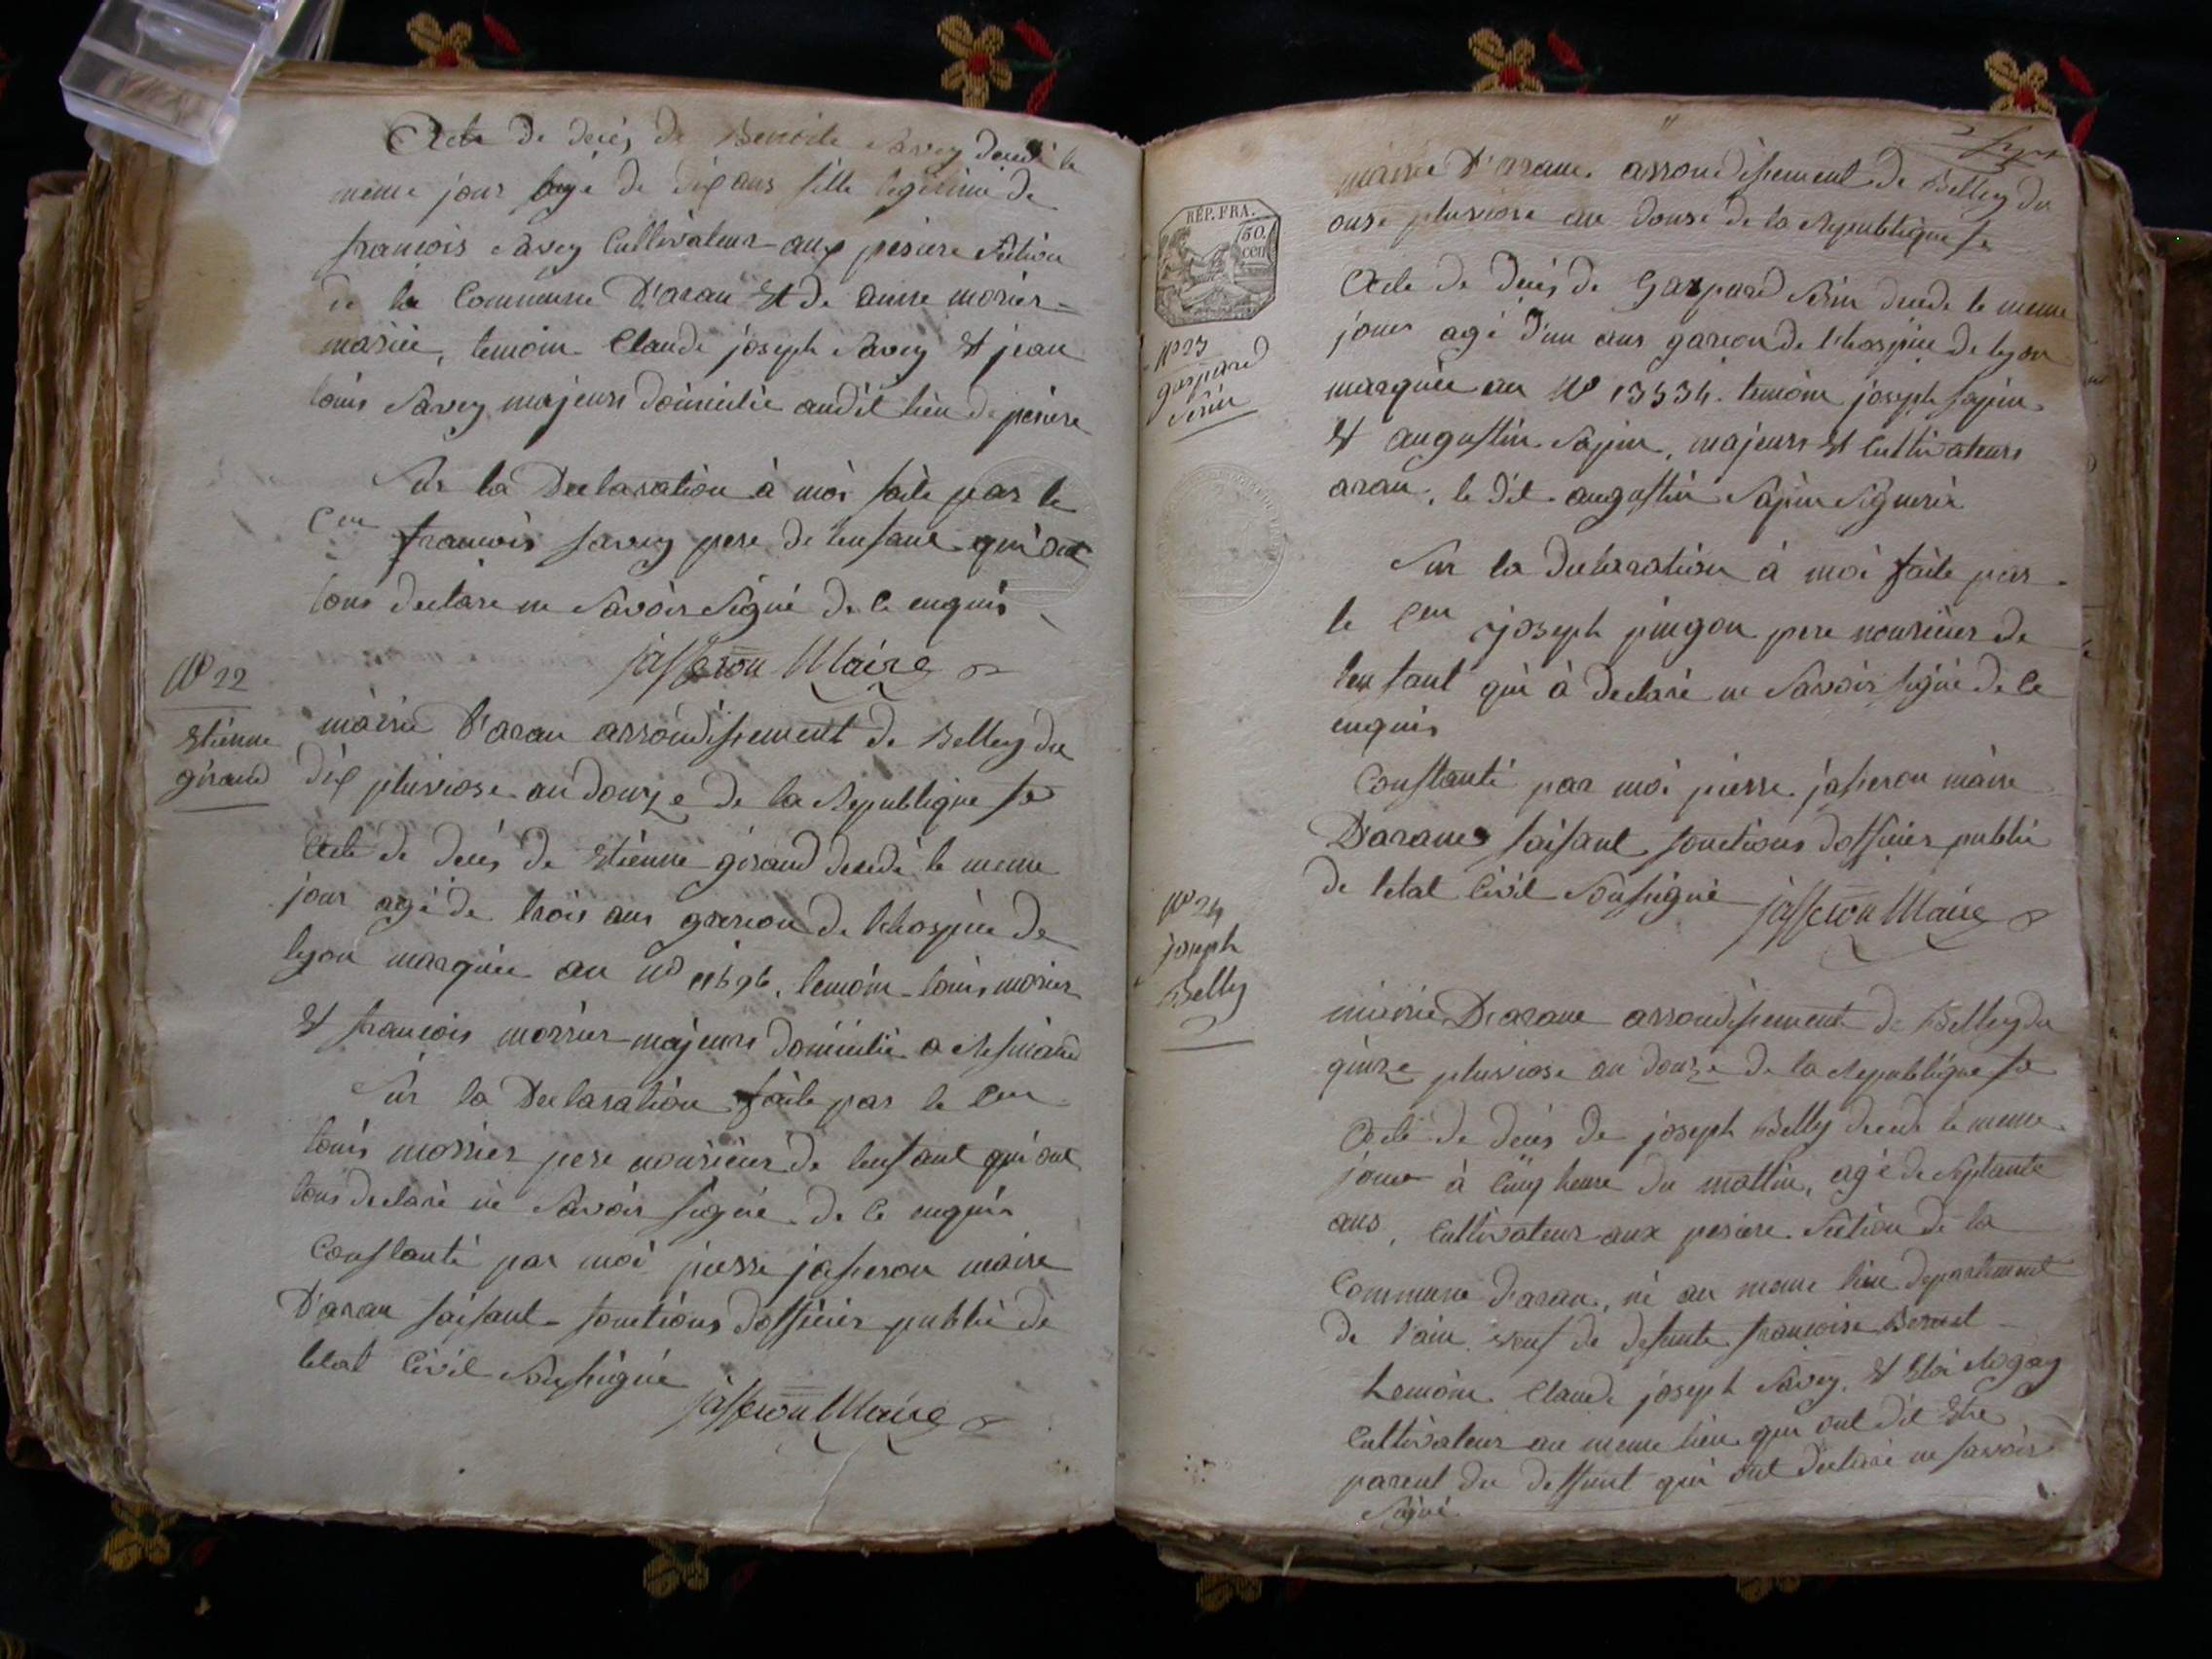 Acte de decès de Benoite Savey decedé le
meme jour agé de dix ans fille legitime de
francois Savey Cultivateur aux pesiere section
de la Commune D'aran et de anne morier
mariée, temoin Claude joseph Savey et jean
louis Savey majeurs domicilie audit lieu de pesiere
Sur la Declaration à moi faite par le
Cen francois savey pere de lenfant qui ont
tous declare ne Savoir Signé de ce enquis
jasseron Maire
No 22
Etienne
giraud
mairie D'aran arrondissement de Belley du
dix pluviose an douze de la Republique fse
Acte de decès de Etienne giraud decedé le meme
jour agé de trois ans garcon de lhospice de
lyon marquée au No 11696, temoin louis morier
et francois morrier majeurs domicilie a Resinand
Sur la Declaration faite par le Cen
louis morrier pere nouricier de lenfant qui ont
tous declaré ne Savoir signé de ce enquis
Constanté par moi pierre jasseron maire
D'aran faisant fonctions dofficier public de
letat Civil Soussigné
jasseron Maire
RÉP. FRA.
50.
cen
No 23
gaspard
Serin
mairie D'arane arrondissement de Belley du
onse pluviose an douse de la Republique fse
Acte de decès de Gaspard Serin decede le meme
jour agé d'un ans garcon de l'hospice de lyon
marquée au No 13534. temoin joseph sapin
et augustin Sapin, majeurs et Cultivateurs
aran, le dit augustin Sapin Signera
Sur la declaration à moi faite par
le Cen joseph pingon pere nouricier de
lenfant qui à declaré ne Savoir signé de ce
enquis
Constanté par moi pierre jasseron maire
D'arane faisant fonctions dofficier public
de letat Civil Soussigné
jasseron Maire
No 24
joseph
Belly
mairie D'arane arrondissement de Belley du
quinze pluviose an douze de la Republique fse
Acte de decès de joseph Belly decede le meme
jour à Cinq heure du mattin, agé de Septante
ans, Cultivateur aux pesiere Section de la
Commune d'aran, né au meme lieu departement
de l'ain veuf de defunte francoise
temoin Claude joseph Savey, et
Cultivateur au meme lieu qui ont dit Etre
parent du deffunt qui ont declaré ne savoir
Signé